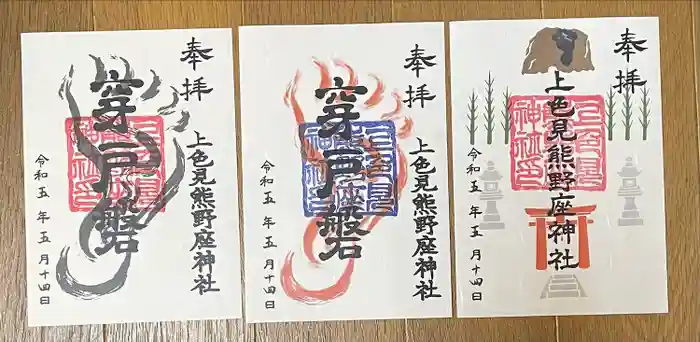 奉拝
穿戸磐
上色見熊野座神社
令和五年五月十四日
奉拝
穿戸磐
上色見熊野座神社
令和五年五月十四日
奉拝
上色見熊野座神社
令和五年五月十四日